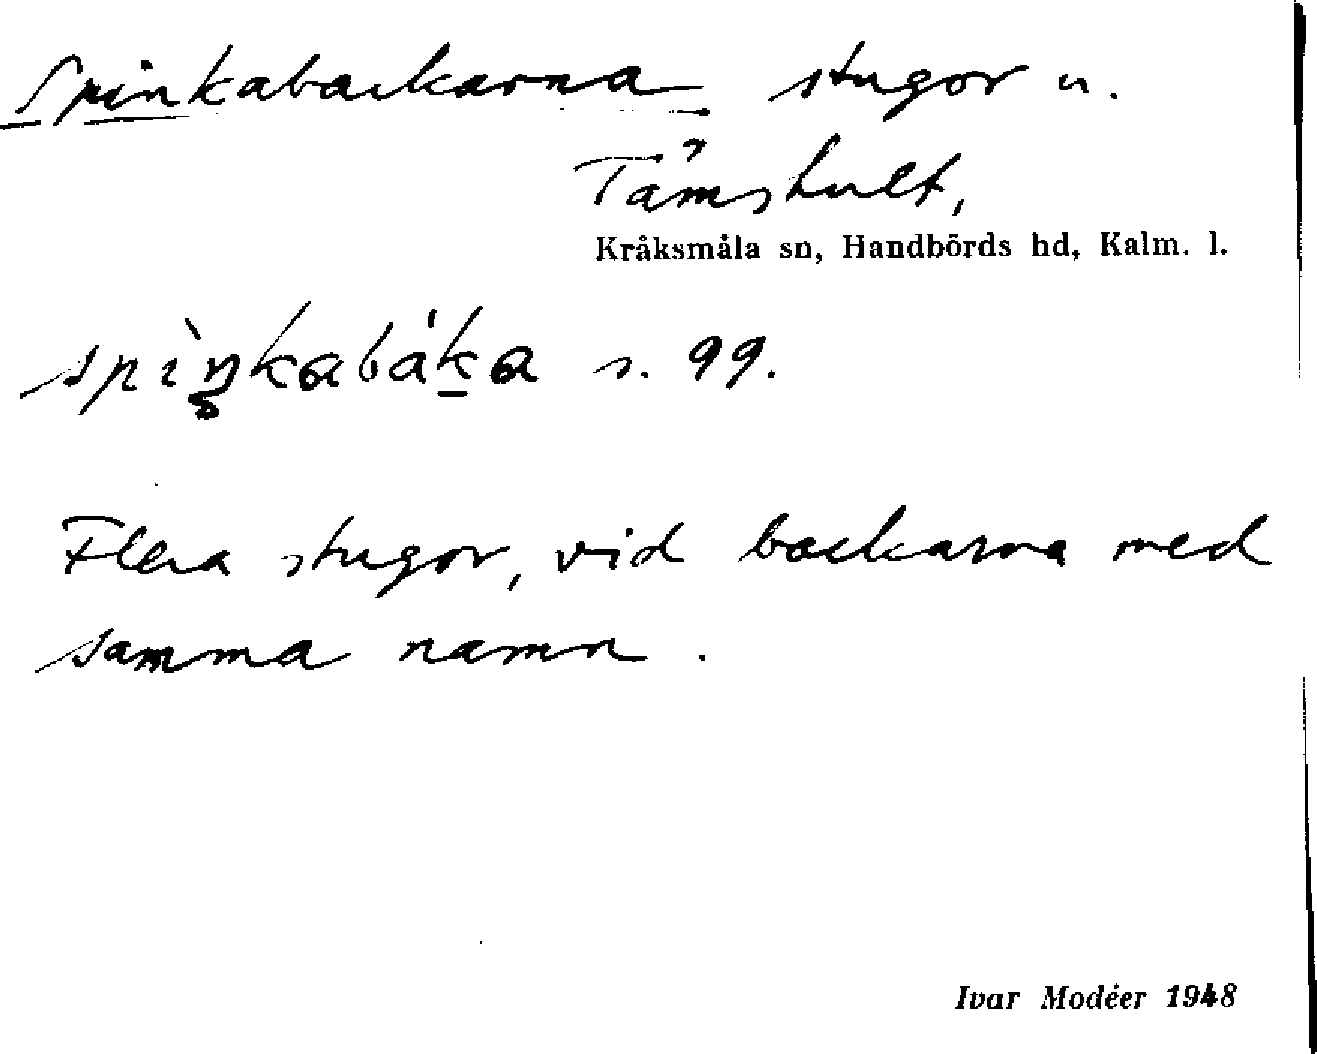 Spinkabackarna stugor u.
Tämshult,
Kråksmåla sn, Handbörds hd, Kalm. l.
spìŋkabák̲a s. 99.
Flera stugor, vid backarna med
samma namn.
Ivar Modéer 1948